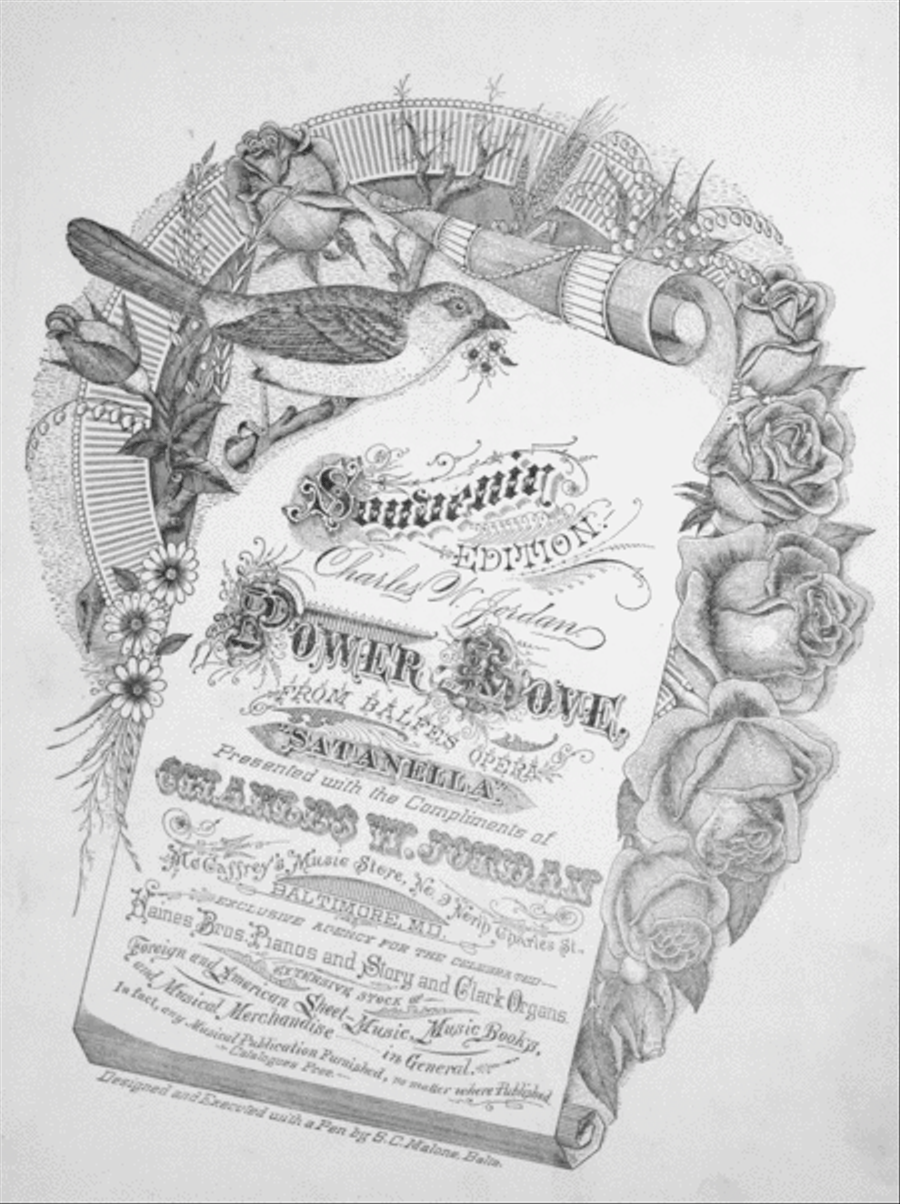 Souvenir
EDITION.
Charles W. Jordan.
POWER OF LOVE,
FROM BALFE'S OPERA
"SATANELLA".
Presented with the Compliments of
CHARLES W. JORDAN
McCaffrey's Music Store, No. 9 North Charles St.
BALTIMORE, MD.
EXCLUSIVE AGENCY FOR THE CELEBRATED
Haines Bros. Pianos and Story and Clark Organs.
EXTENSIVE STOCK OF
Foreign and American Sheet Music, Music Books,
and Musical Merchandise in General.
In fact, any Musical Publication Furnished, no matter where Published
Catalogues Free.
Designed and Executed with a Pen by S.C. Malone, Balto.